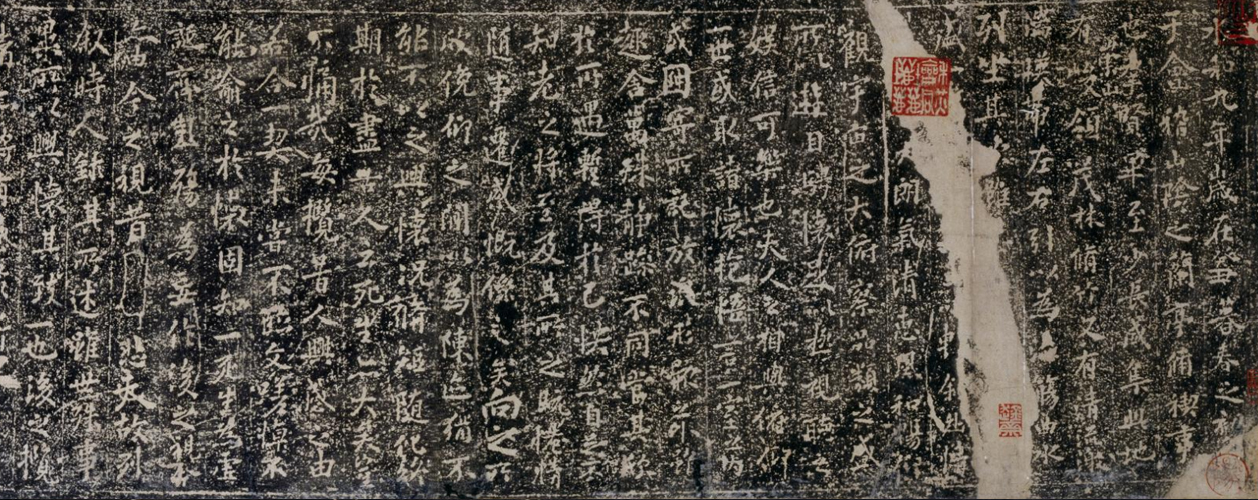 和九年歲在癸丑暮春之初
于會稽山陰之蘭亭脩稧事
也羣賢畢至少長咸集此地
有峻領茂林脩竹又有清流激
湍暎帶左右引以為觴曲水
列坐其次雖
盛幽情
朗氣清惠風和暢仰
觀宇宙之大俯察品類之盛
所以遊目騁懷足以極視聽之
娛信可樂也夫人之相與俯仰
一世或取諸懷抱悟言一室之內
或因寄所託放浪形骸之外雖
趣舍萬殊靜躁不同當其欣
於所遇蹔得於己快然自足不
知老之將至及其所之既惓情
隨事遷感慨係之矣向之所
欣俛仰之閒以為陳迹猶不
能不以之興懷況脩短隨化終
期於盡古人云死生亦大矣豈
不痛哉每攬昔人興感之由
若合一契未嘗不臨文嗟悼不
能喻之於懷固知一死生為虛
誕齊彭殤為妄作後之視今
亦由今之視昔悲夫故列
敘時人錄其所述雖世殊事
異所以興懷其致一也後之攬